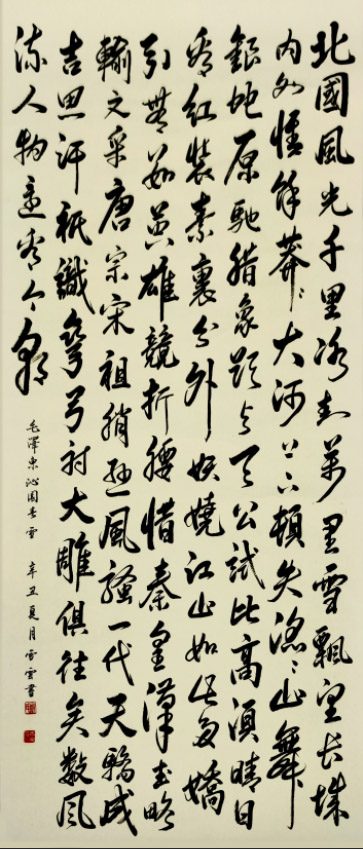 北國風光千里冰封萬里雪飄望長城
内外惟餘莽〻大河上下頓失滔〻山舞
銀蛇原馳腊象欲与天公試比高須晴日
看紅裝素裹分外妖嬈江山如此多嬌
引無數英雄競折腰惜秦皇漢武略
輸文采唐宗宋祖稍遜風騷一代天驕成
吉思汗祇識彎弓射大雕俱往矣數風
流人物還看今朝
毛澤東沁園春雪 辛丑夏月書